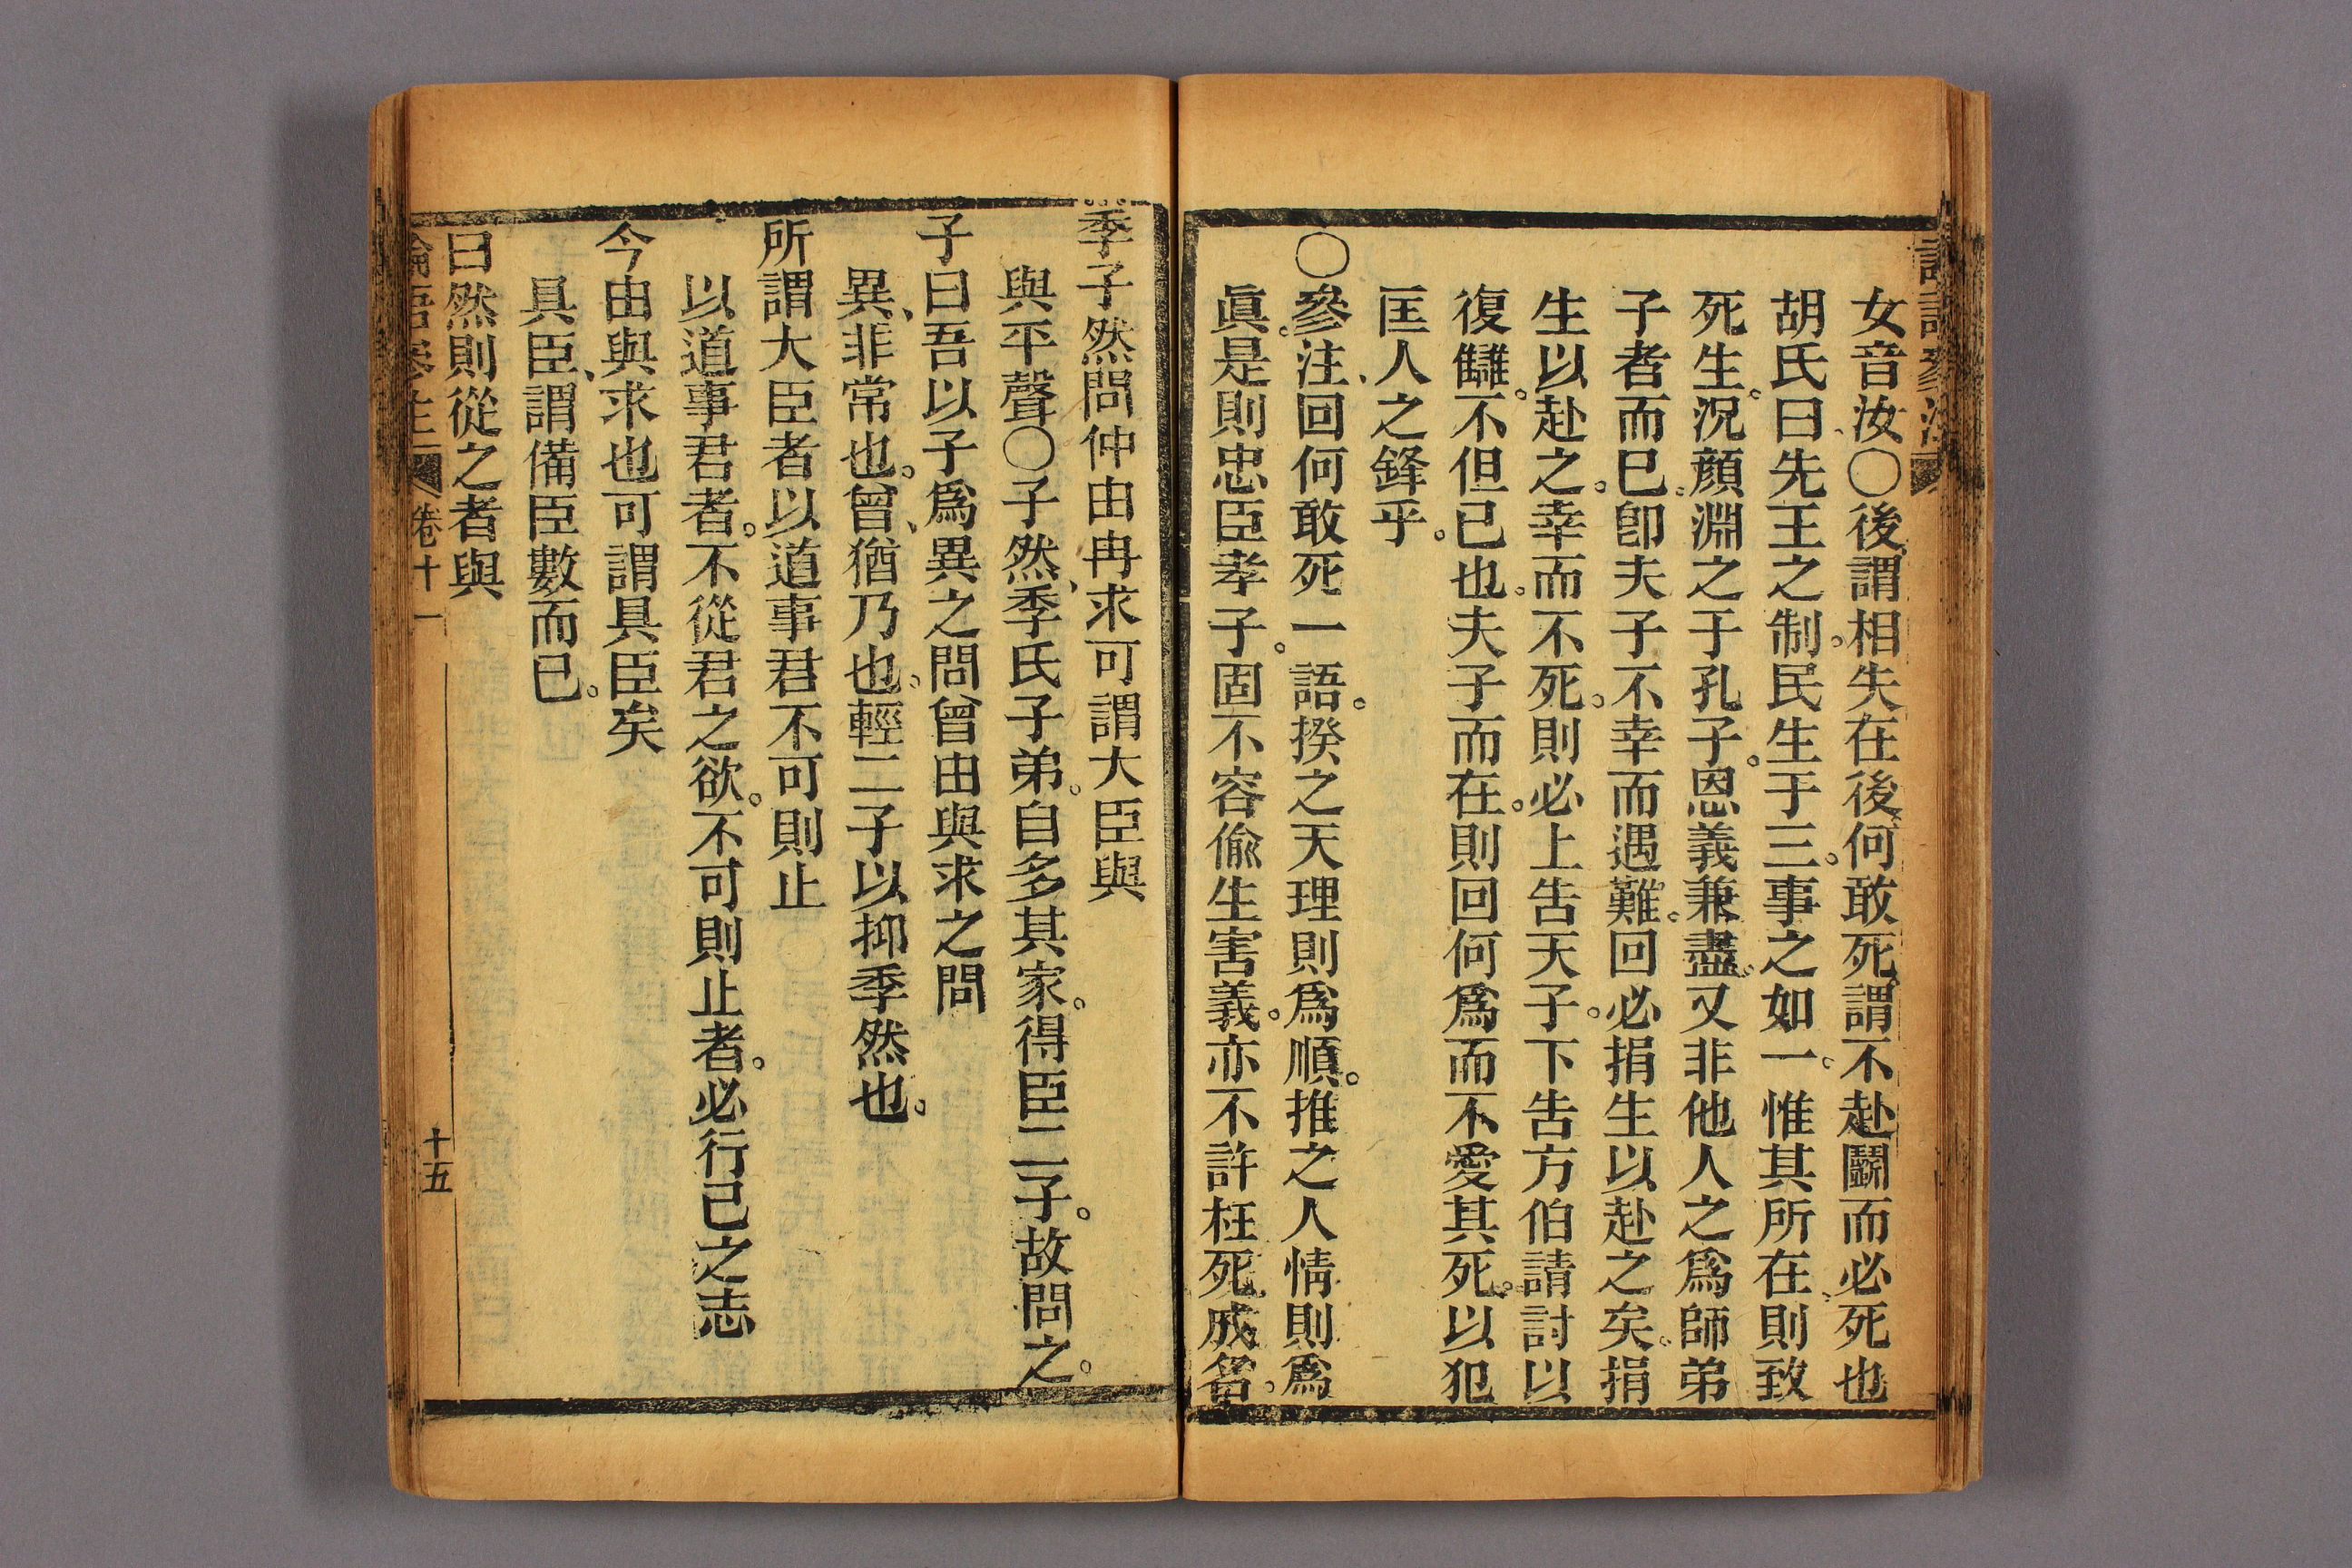 女音汝〇後謂相失在後何敢死謂不赴鬭而必死也
胡氏曰先王之制。民生于三。事之如一。惟其所在則致
死生。況顔淵之于孔子。恩義兼盡。又非他人之爲師弟
子者而巳。卽夫子不幸而遇難。回必捐生以赴之矣。捐
生以赴之。幸而不死。則必上告天子。下告方伯請討以
復讎。不但已也。夫子而在。則回何爲而不愛其死。以犯
匡人之鋒乎。
〇參注、回何敢死一語。揆之天理則爲順。推之人情則爲
眞。是則忠臣孝子。固不容偷生害義。亦不許枉死成名。
季子然問仲由冉求可謂大臣與
與平聲〇子然、季氏子弟。自多其家。得臣二子。故問之。
子曰吾以子爲異之問曾由與求之問
異、非常也。曾、猶乃也。輕二子以抑季然也。
所謂大臣者以道事君不可則止
以道事君者。不從君之欲。不可則止者。必行己之志
今由與求也可謂具臣矣
具臣、謂備臣數而已。
曰然則從之者與
論語參注 卷十一 十五